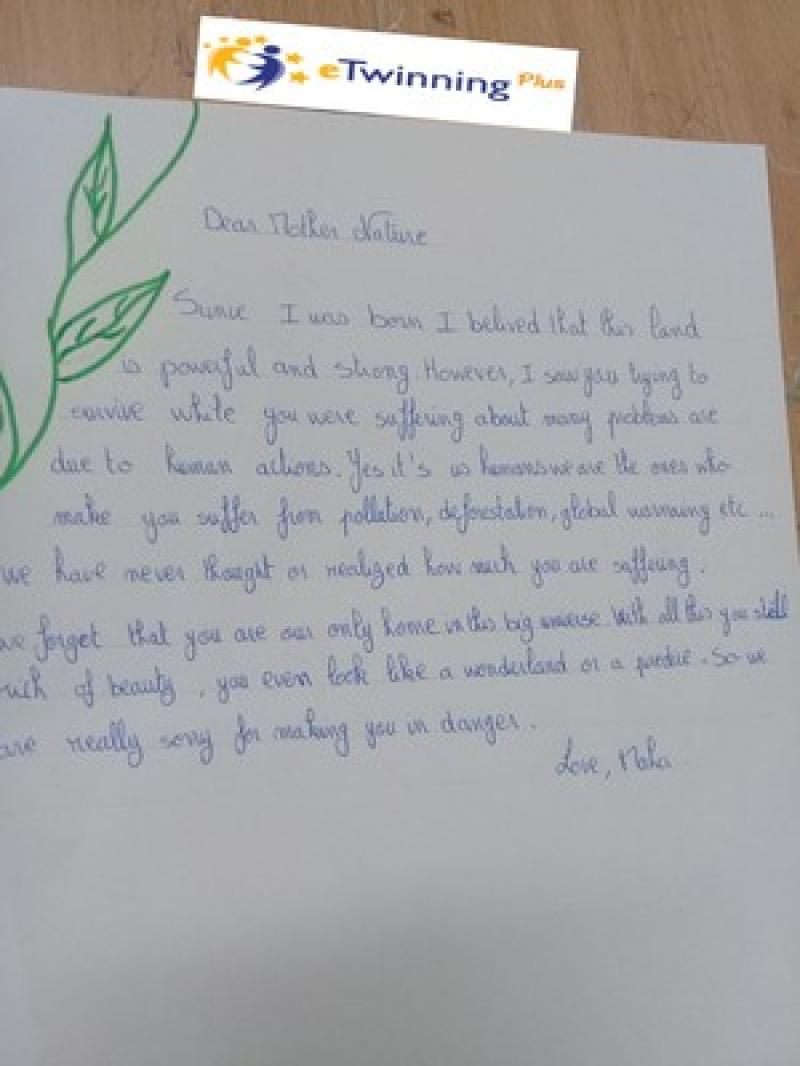 eTwinning Plus
Dear Mother Nature
Since I was born I belived that this land
is powerful and strong. However, I saw you trying to
survive while you were suffering about many problems are
due to human actions. Yes it's us humans we are the ones who
make you suffer from pollution, deforestation, global warming etc ...
we have never thought or realized how much you are suffering.
we forget that you are our only home in this big universe. With all this you still
rich of beauty, you even look like a wonderland or a . So we
are really sorry for making you in danger.
Love, Maha